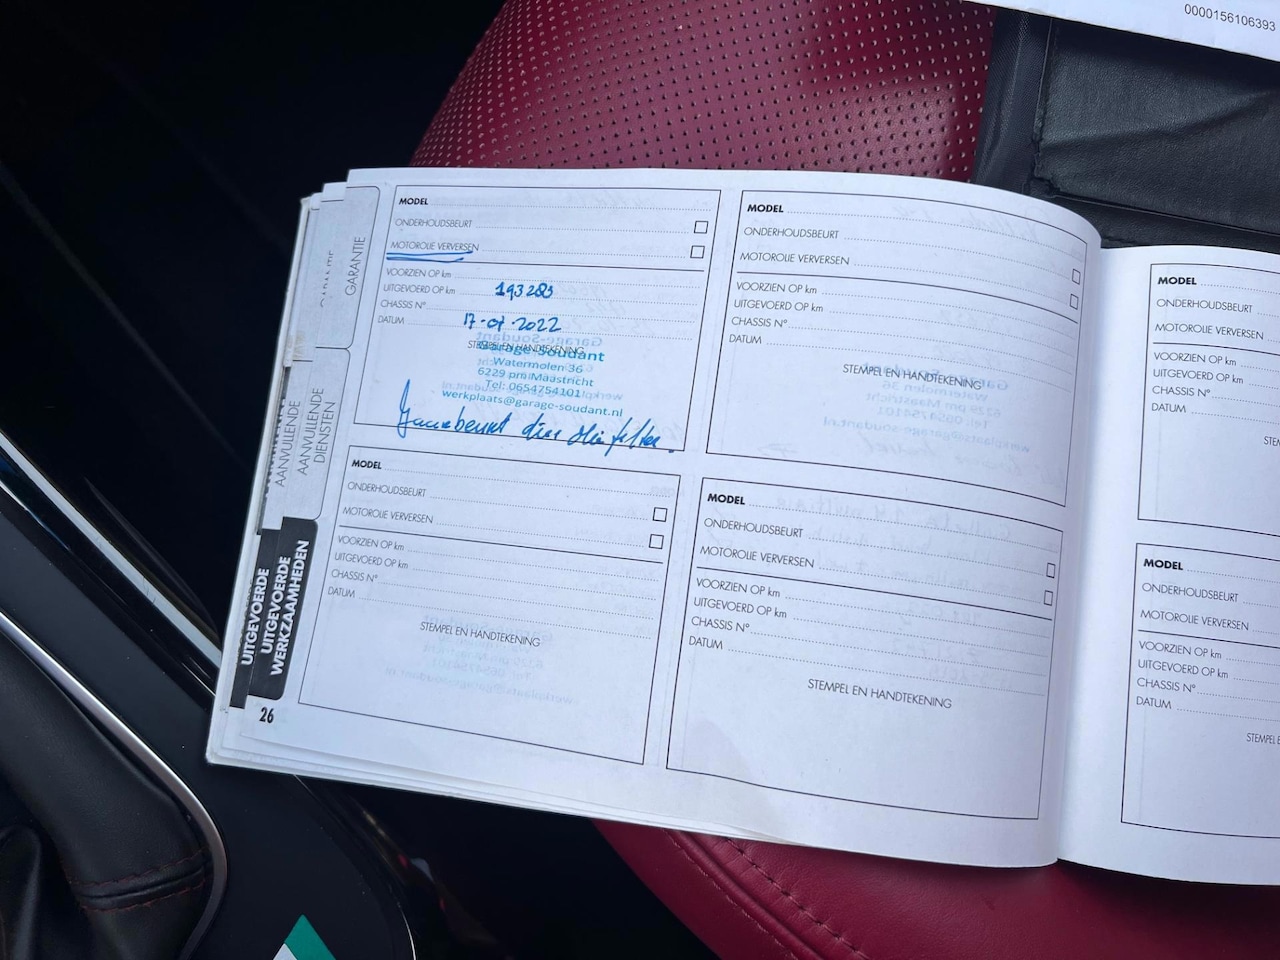 0000156106393
GARANTIE
AANVULLENDE
AANVULLENDE
DIENSTEN
UITGEVOERDE
UITGEVOERDE
WERKZAAMHEDEN
26
MODEL
ONDERHOUDSBEURT
MOTOROLIE VERVERSEN
VOORZIEN OP km
UITGEVOERD OP km 193283
CHASSIS N°
DATUM 17-07-2022
STEMPEL EN HANDTEKENING
Garage-Soudant
Watermolen 36
6229 pm Maastricht
Tel: 0654754101
werkplaats@garage-soudant.nl
MODEL
ONDERHOUDSBEURT
MOTOROLIE VERVERSEN
VOORZIEN OP km
UITGEVOERD OP km
CHASSIS N°
DATUM
STEMPEL EN HANDTEKENING
MODEL
ONDERHOUDSBEURT
MOTOROLIE VERVERSEN
VOORZIEN OP km
UITGEVOERD OP km
CHASSIS N°
DATUM
STEMPEL EN HANDTEKENING
MODEL
ONDERHOUDSBEURT
MOTOROLIE VERVERSEN
VOORZIEN OP km
UITGEVOERD OP km
CHASSIS N°
DATUM
STEMPEL EN HANDTEKENING
MODEL
ONDERHOUDSBEURT
MOTOROLIE VERVERSEN
VOORZIEN OP km
UITGEVOERD OP km
CHASSIS N°
DATUM
MODEL
ONDERHOUDSBEURT
MOTOROLIE VERVERSEN
VOORZIEN OP km
UITGEVOERD OP km
CHASSIS N°
DATUM